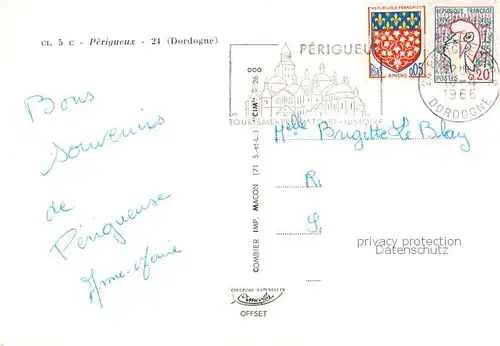 CL. 5 C - Périgueux - 24 (Dordogne)
Bons
souvenirs
de
Périgueuse
Anne-Marie
PÉRIGUEUX
TOURISME-PRÉHISTOIRE-HISTOIRE
REPUBLIQUE FRANÇAISE
0,05
AMIENS
REPUBLIQUE FRANÇAISE
POSTES 0,20
1966
DORDOGNE
Melle Brigitte Le Blay
R.
S.
COMBIER IMP. MACON (71 S.-et-L.) "CIM"
COULEURS NATURELLES
Cimcolor
OFFSET
privacy protection
Datenschutz